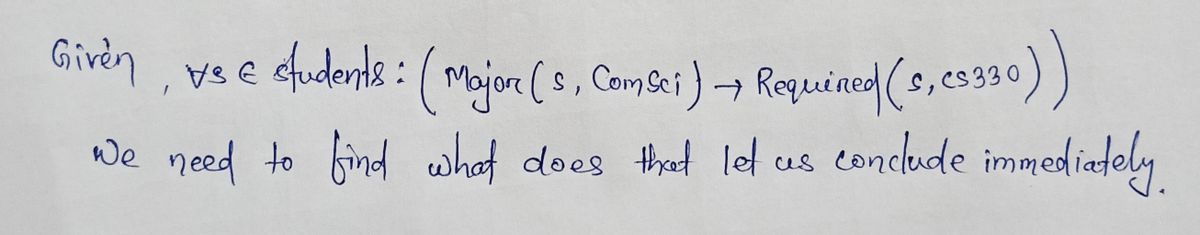 Given, ∀s ∈ students : (Major(s, ComSci) → Required(s, cs330))
We need to find what does that let us conclude immediately.